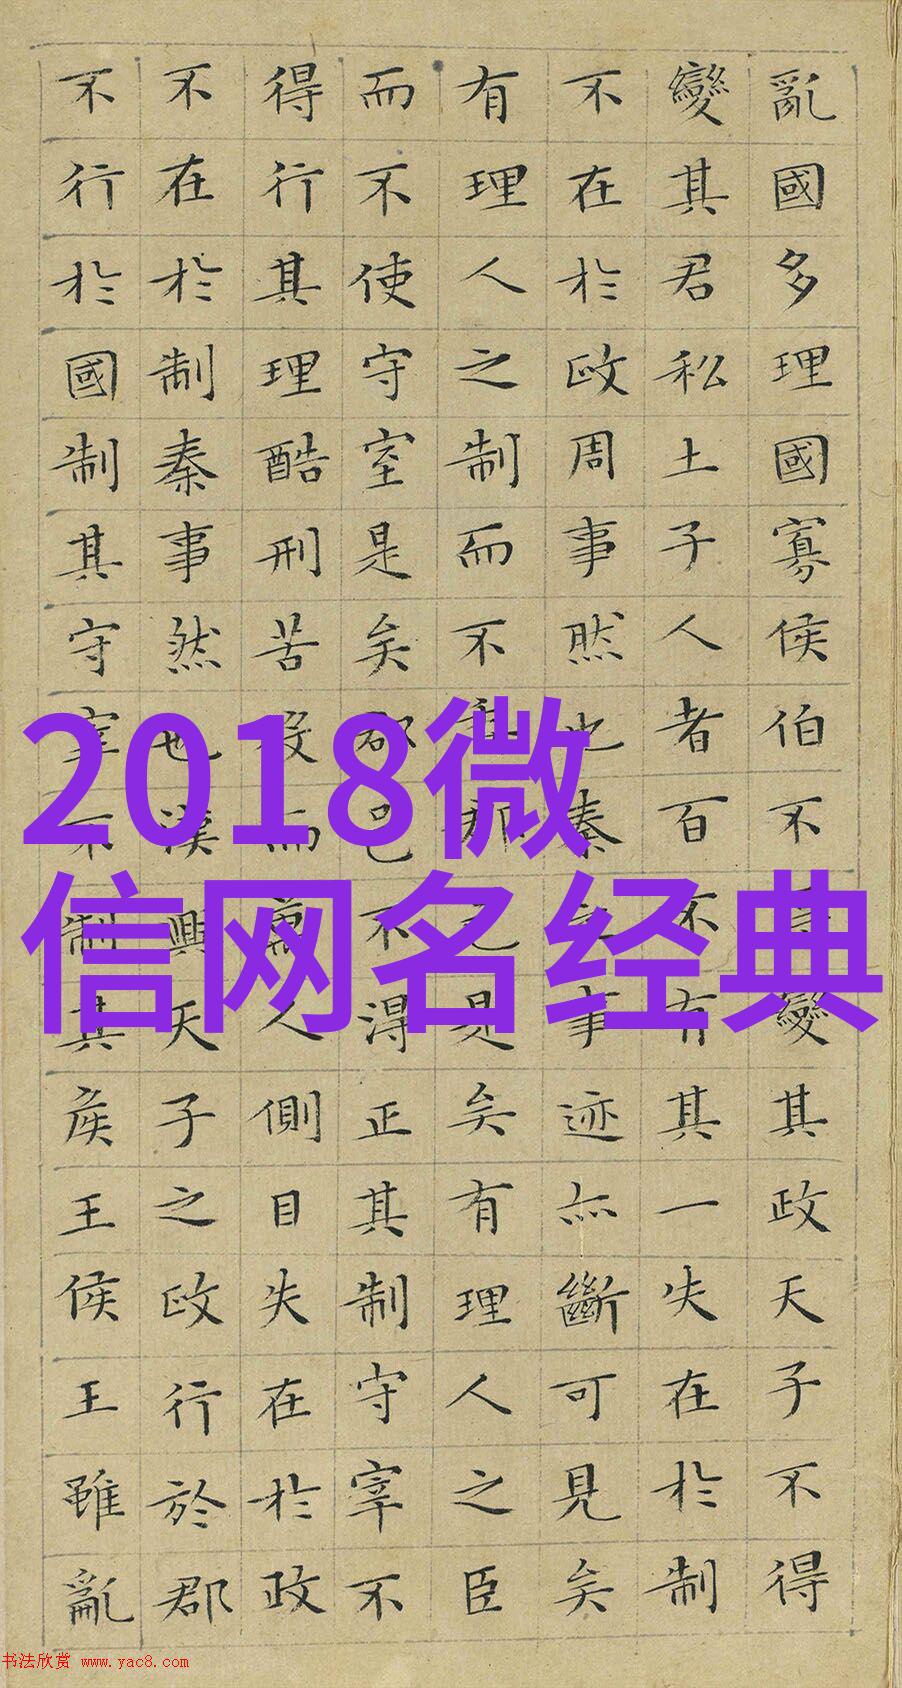 亂國多理國寡侯伯不變其政天子不得
變其君私土子人者百不有其一失在於制
不在於政周事然也秦事迹亦斷可見矣
有理人之制而不委郡邑是矣有理人之臣
而不使守宰是矣郡邑不得正其制守宰不
得行其理酷刑苦役而萬人側目失在於政
不在於制秦事然也漢興天子之政行於郡
不行於國制其守宰不制其侯王侯王雖亂
2018微
信网名经典
书法欣赏 www.yac8.com